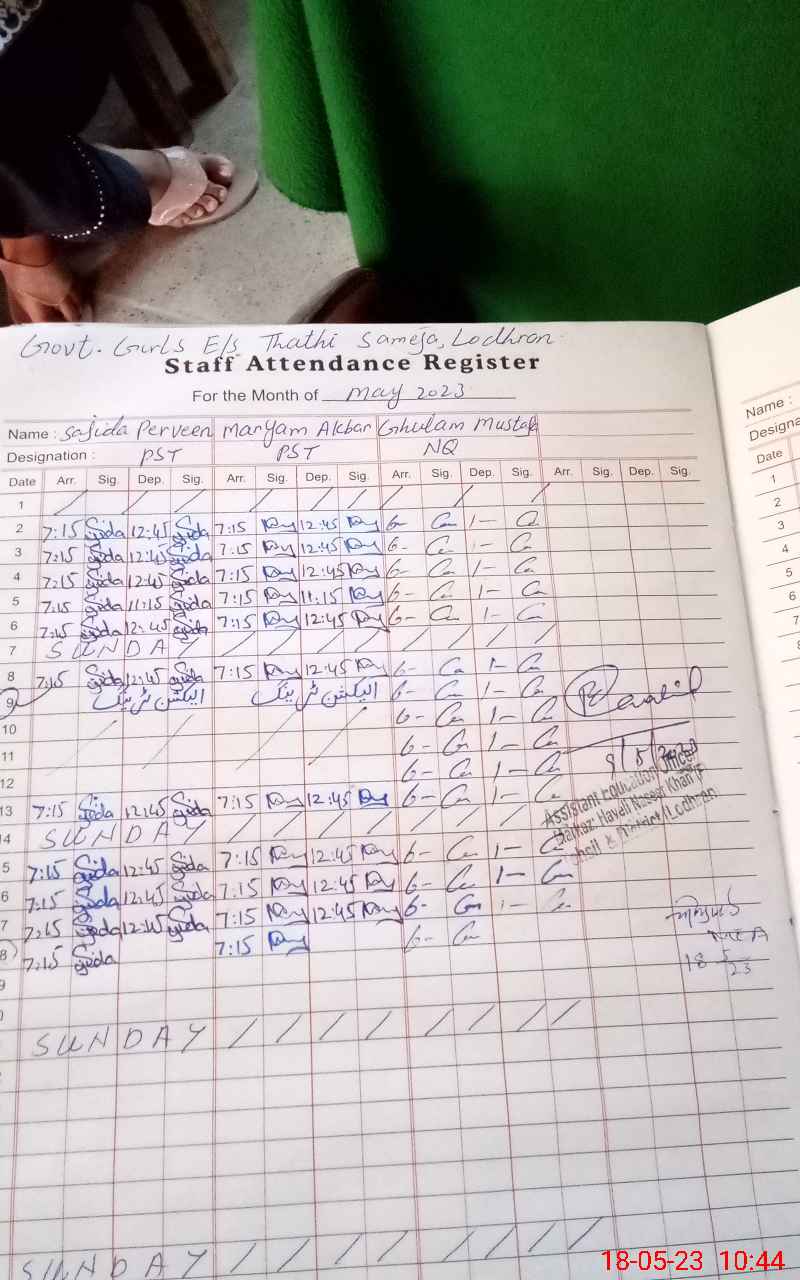 Govt. Girls E/s Thathi Sameja, Lodhron
Staff Attendance Register
For the Month of May 2023
Name : Sajida Perveen Maryam Akbar Ghulam Mustafa
Designation : PST PST NQ
Date Arr. Sig. Dep. Sig. Arr. Sig. Dep. Sig. Arr. Sig. Dep. Sig. Arr. Sig. Dep. Sig.
1 / / / / / / / / / /
2 7:15 Sajida 12:45 Sajida 7:15 12:45 6- 1-
3 7:15 Sajida 12:45 Sajida 7:15 12:45 6- 1-
4 7:15 Sajida 12:45 Sajida 7:15 12:45 6- 1-
5 7:15 Sajida 11:15 Sajida 7:15 11:15 6- 1-
6 7:15 Sajida 12:45 Sajida 7:15 12:45 6- 1-
7 SUNDAY / / / / / / / /
8 7:15 Sajida 12:45 Sajida 7:15 12:45 6- 1-
9 الیکشن ٹریننگ الیکشن ٹریننگ 6- 1-
10 6- 1-
11 6- 1-
12 6- 1-
13 7:15 Sajida 12:45 Sajida 7:15 12:45 6- 1-
14 SUNDAY / / / / / / / /
5 7:15 Sajida 12:45 Sajida 7:15 12:45 6- 1-
6 7:15 Sajida 12:45 Sajida 7:15 12:45 6- 1-
7 7:15 Sajida 12:45 Sajida 7:15 12:45 6- 1-
8 7:15 Sajida 7:15 6-
9
SUNDAY / / / / / / / /
SUNDAY / / / / / / / /
9/5/2023
Assistant Education Officer
Markaz: Havali Naseer Khan
Tehsil & District Lodhran
MEA
18 5
23
Name :
Designa
Date
1
2
3
4
5
6
7
18-05-23 10:44